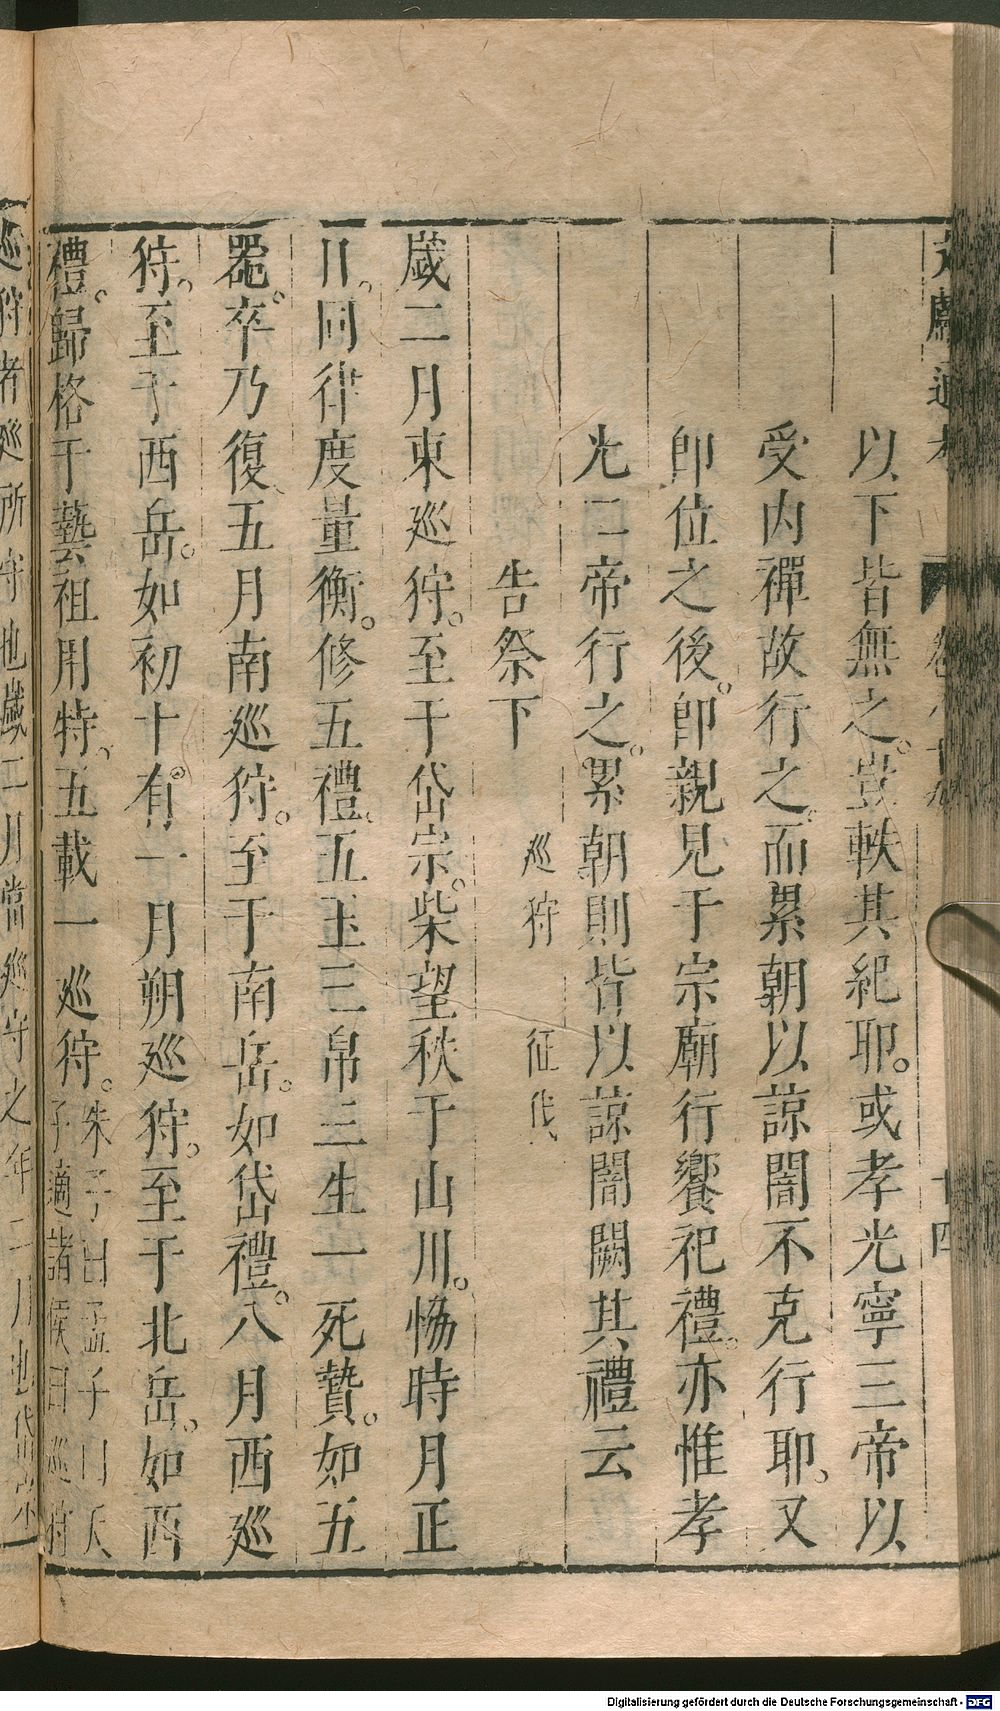 文獻通考 卷八十九 十四
以下皆無之。豈軼其紀耶。或孝光寧三帝以
受內禪故行之。而累朝以諒闇不克行耶。又
即位之後。即親見于宗廟行饗祀禮。亦惟孝
光二帝行之。累朝則皆以諒闇闕其禮云
告祭下 巡狩 征伐
歲二月東巡狩。至于岱宗。柴望秩于山川。恊時月正
日。同律度量衡。修五禮。五玉三帛二生一死贄。如五
器。卒乃復五月南巡狩。至于南岳。如岱禮。八月西巡
狩。至于西岳。如初十。有一月朔巡狩。至于北岳。如西
禮。歸格于藝祖用特。五載一巡狩。朱子曰孟子曰天
子適諸侯曰巡狩
巡狩者巡所守也歲二月當巡守之年二月也岱宗
Digitalisierung gefördert durch die Deutsche Forschungsgemeinschaft - DFG